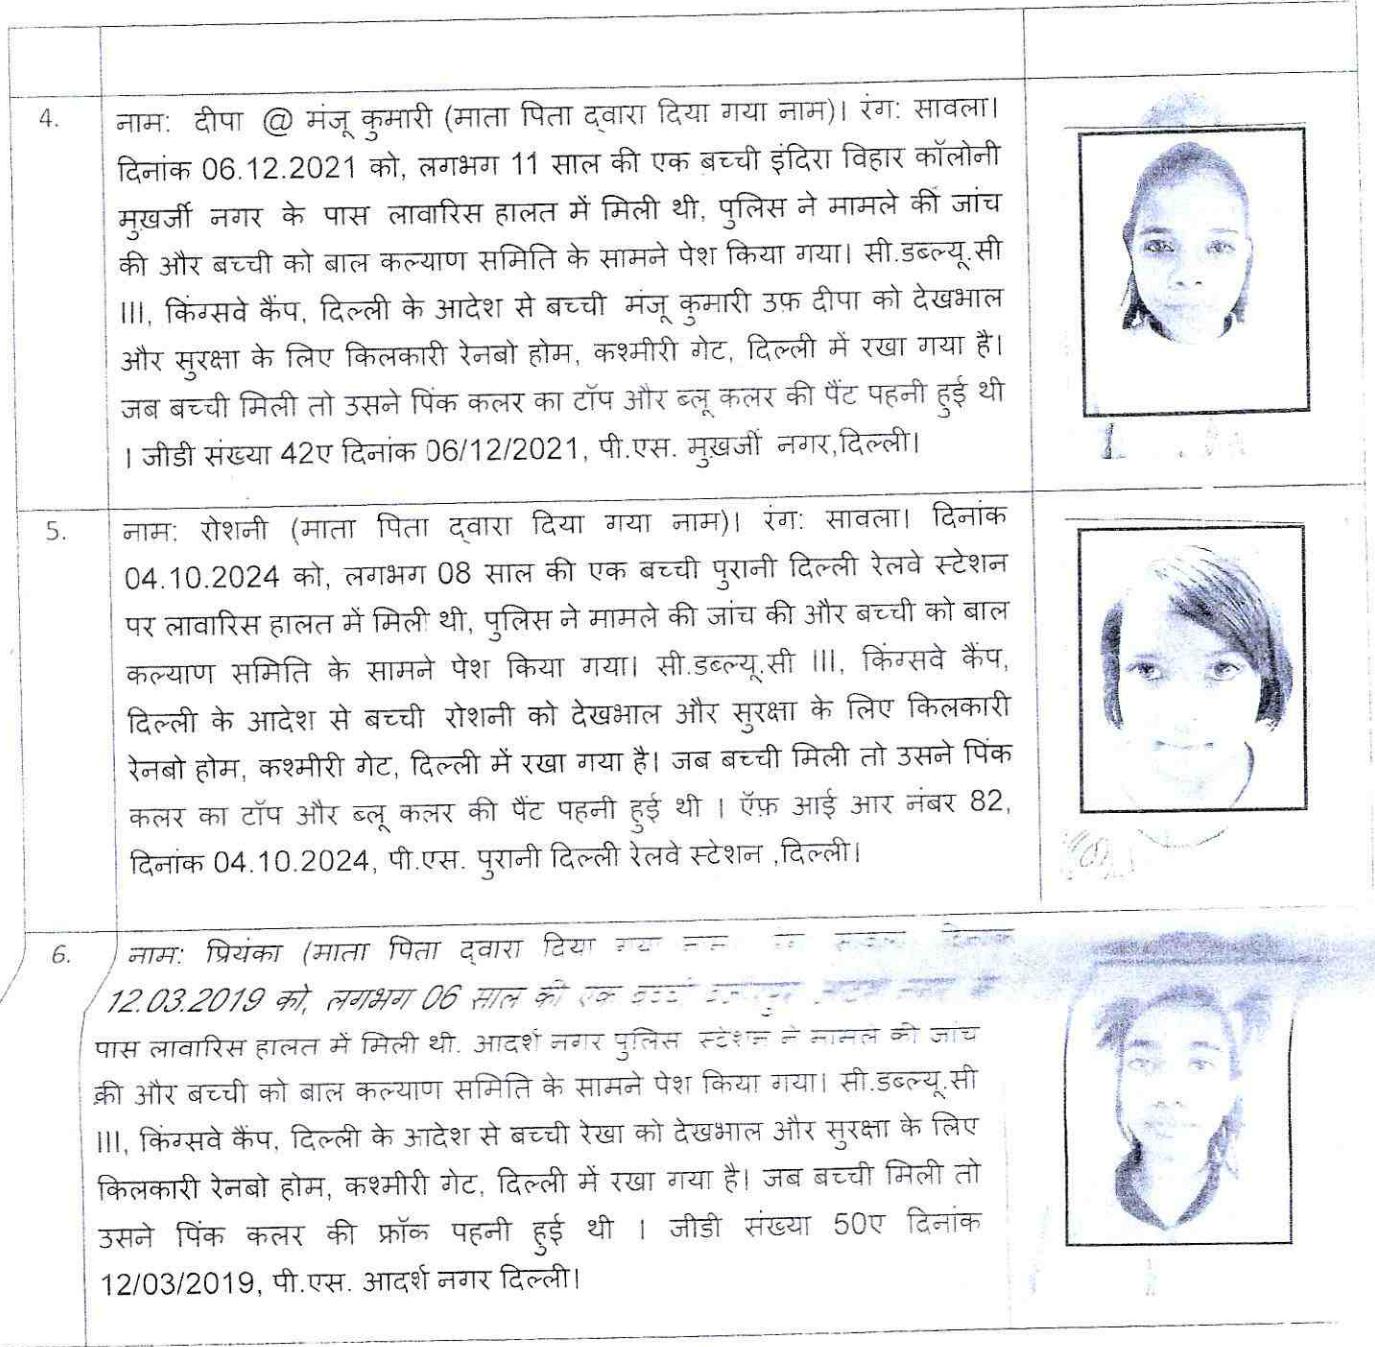 4.
नाम: दीपा @ मंजू कुमारी (माता पिता द्वारा दिया गया नाम)। रंग: सावला।
दिनांक 06.12.2021 को, लगभग 11 साल की एक बच्ची इंदिरा विहार कॉलोनी
मुखर्जी नगर के पास लावारिस हालत में मिली थी, पुलिस ने मामले की जांच
की और बच्ची को बाल कल्याण समिति के सामने पेश किया गया। सी.डब्ल्यू.सी
III, किंग्सवे कैंप, दिल्ली के आदेश से बच्ची मंजू कुमारी उफ़ दीपा को देखभाल
और सुरक्षा के लिए किलकारी रेनबो होम, कश्मीरी गेट, दिल्ली में रखा गया है।
जब बच्ची मिली तो उसने पिंक कलर का टॉप और ब्लू कलर की पैंट पहनी हुई थी
। जीडी संख्या 42ए दिनांक 06/12/2021, पी.एस. मुखर्जी नगर,दिल्ली।
5.
नाम: रोशनी (माता पिता द्वारा दिया गया नाम)। रंग: सावला। दिनांक
04.10.2024 को, लगभग 08 साल की एक बच्ची पुरानी दिल्ली रेलवे स्टेशन
पर लावारिस हालत में मिली थी, पुलिस ने मामले की जांच की और बच्ची को बाल
कल्याण समिति के सामने पेश किया गया। सी.डब्ल्यू.सी III, किंग्सवे कैंप,
दिल्ली के आदेश से बच्ची रोशनी को देखभाल और सुरक्षा के लिए किलकारी
रेनबो होम, कश्मीरी गेट, दिल्ली में रखा गया है। जब बच्ची मिली तो उसने पिंक
कलर का टॉप और ब्लू कलर की पैंट पहनी हुई थी । ऍफ़ आई आर नंबर 82,
दिनांक 04.10.2024, पी.एस. पुरानी दिल्ली रेलवे स्टेशन ,दिल्ली।
6.
नाम: प्रियंका (माता पिता द्वारा दिया गया नाम रंग सावला दिनांक
12.03.2019 को, लगभग 06 साल की एक बच्ची
पास लावारिस हालत में मिली थी. आदर्श नगर पुलिस स्टेशन ने मामले की जांच
की और बच्ची को बाल कल्याण समिति के सामने पेश किया गया। सी.डब्ल्यू.सी
III, किंग्सवे कैंप, दिल्ली के आदेश से बच्ची रेखा को देखभाल और सुरक्षा के लिए
किलकारी रेनबो होम, कश्मीरी गेट, दिल्ली में रखा गया है। जब बच्ची मिली तो
उसने पिंक कलर की फ्रॉक पहनी हुई थी । जीडी संख्या 50ए दिनांक
12/03/2019, पी.एस. आदर्श नगर दिल्ली।